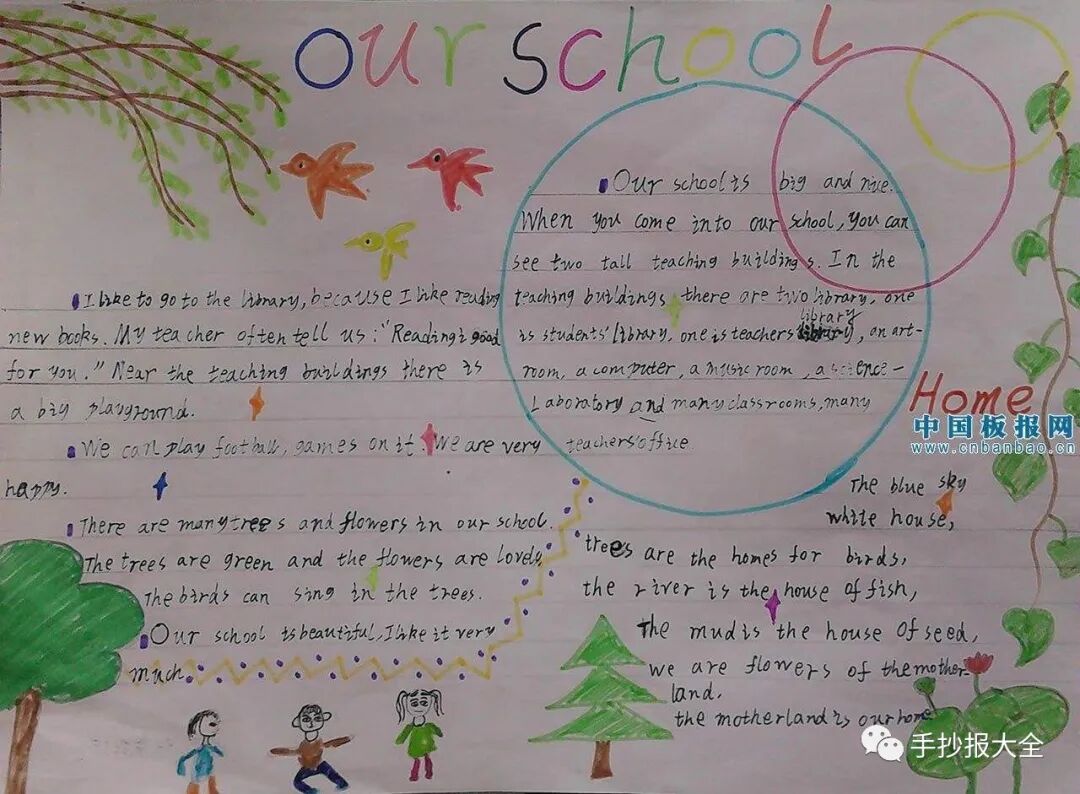 our school
Our school is big and nice.
When you come into our school, you can
see two tall teaching buildings. In the
teaching buildings there are two library, one
is students' library, one is teachers' library, an art-
room, a computer, a music room, a science-
Laboratory and many classrooms, many
teachers'office.
I like to go to the library, because I like reading
new books. My teacher often tell us: "Reading is good
for you." Near the teaching buildings there is
a big playground.
We can play football, games on it. We are very
happy.
There are many trees and flowers in our school.
The trees are green and the flowers are lovely.
The birds can sing in the trees.
Our school is beautiful, I like it very
much.
Home
中国板报网
www.cnbanbao.cn
The blue sky
white house,
trees are the homes for birds,
the river is the house of fish,
The mud is the house of seed,
we are flowers of the mother-
land.
the motherland is our home
手抄报大全